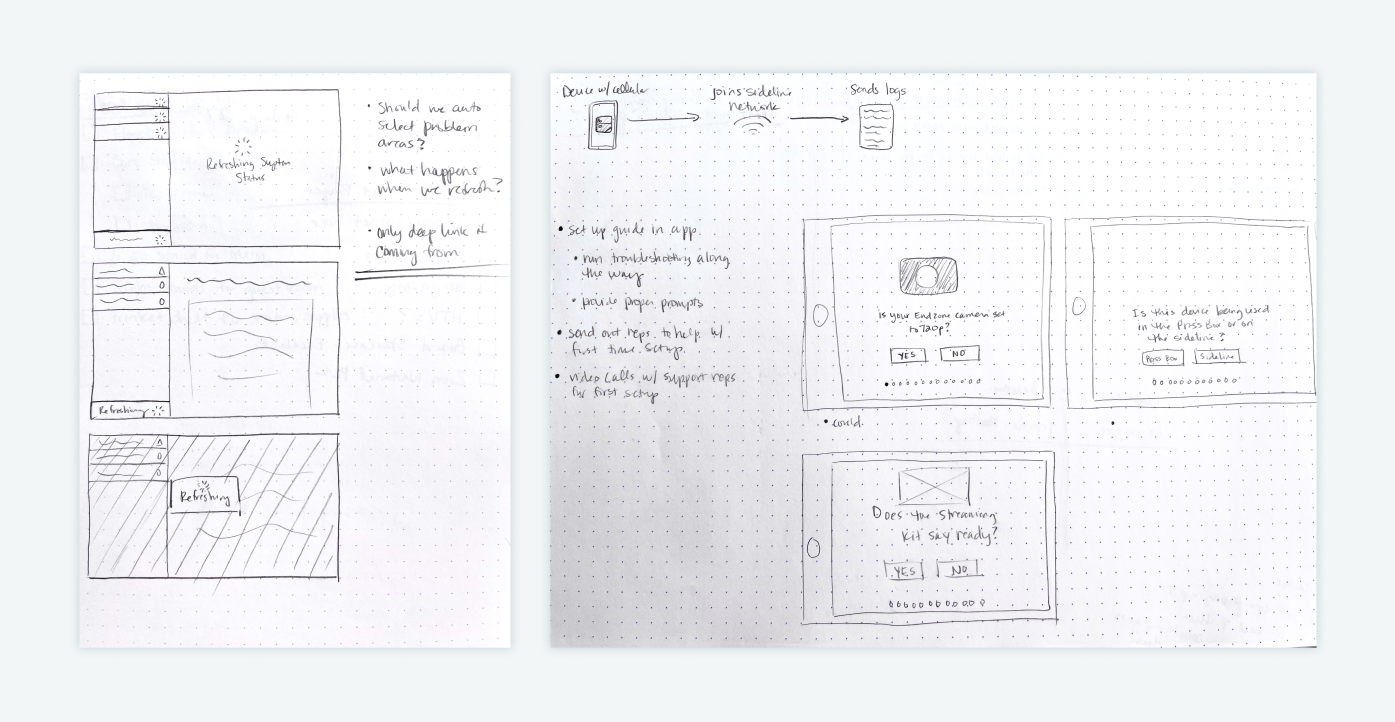 Refreshing System
Status
• Should we auto
select problem
areas?
• what happens
when we refresh?
• only deep link if
coming from
Refreshing
Refreshing
Device w/cellular
joins sideline
network
Sends logs
• Set up guide in app.
• run troubleshooting along
the way
• provide proper prompts
• send out reps. to help w/
first time setup.
• video calls w/ support reps
for first setup
is your Endzone camera set
to 720p?
YES
NO
• could.
Is this device being used
in the Press Box or on
the sideline?
Press Box
Sideline
Does the Streaming
Kit say ready?
YES
NO